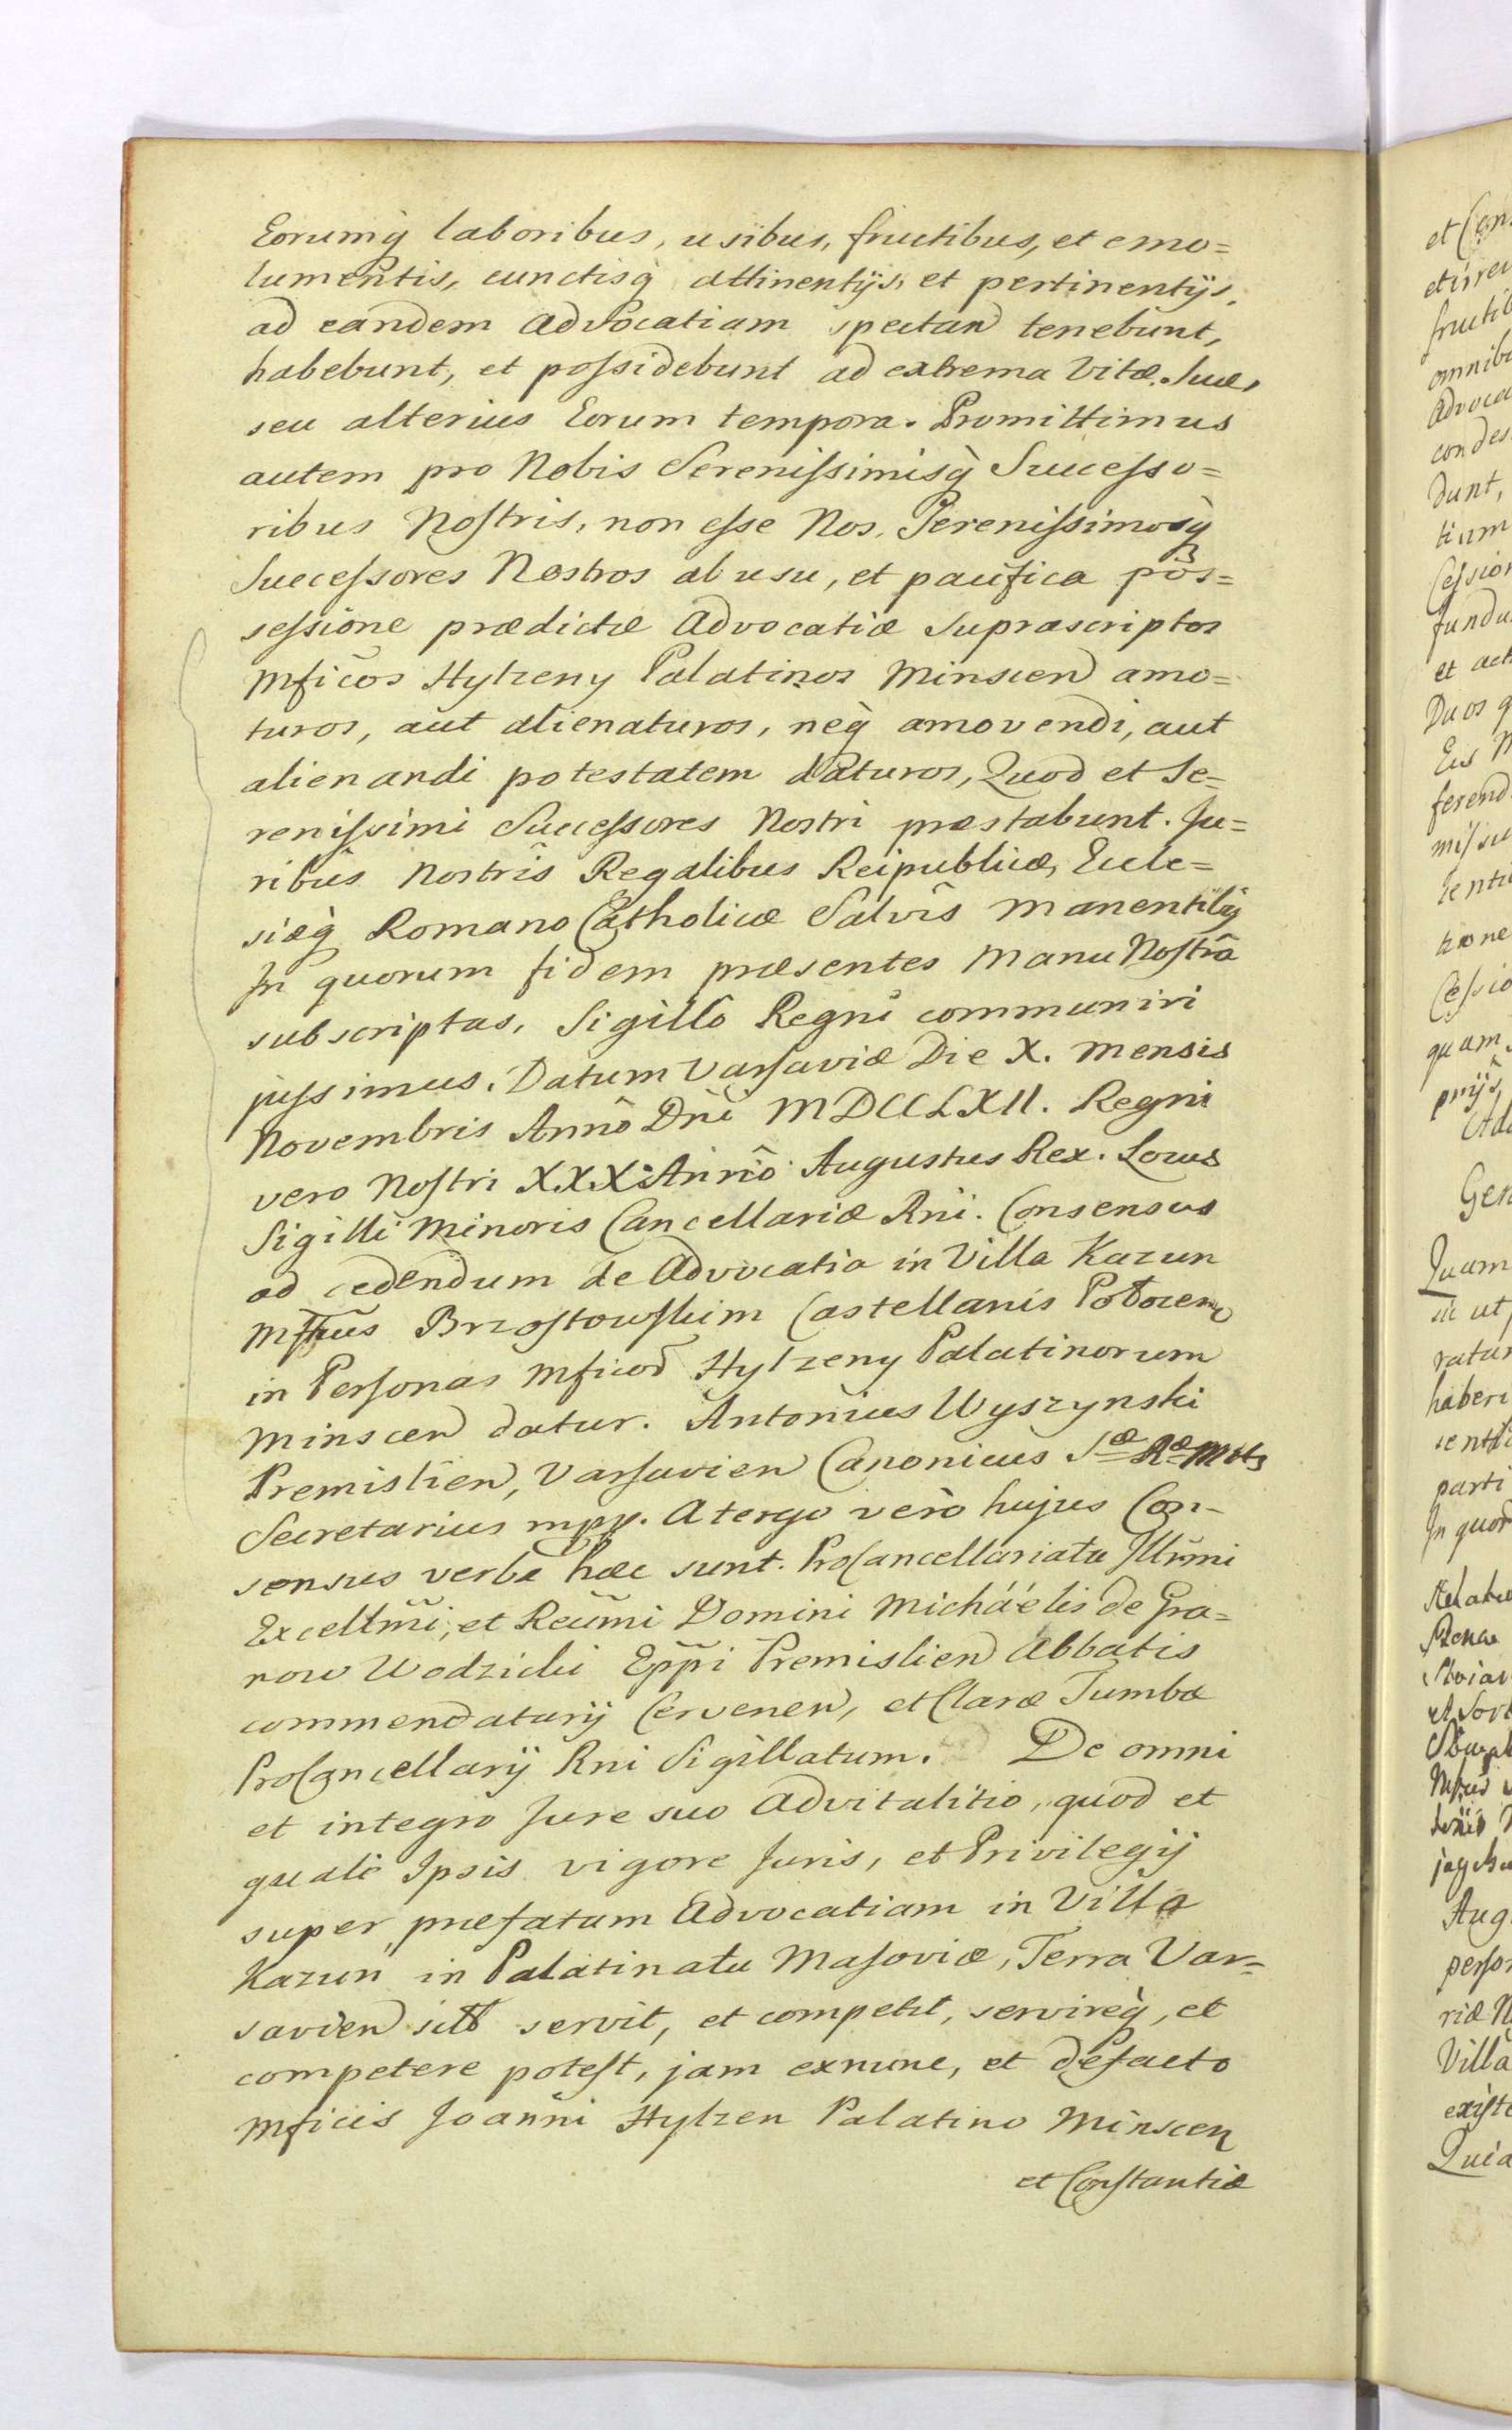 Eorumq̀ laboribus, usibus, fructibus, et emo=
lumentis, cunctisq̀ attinentijs, et pertinentijs,
ad eandem Advocatiam spectan tenebunt,
habebunt, et possidebunt ad extrema Vitæ Suæ,
seu alterius Eorum tempora. Promittimus
autem pro Nobis Serenissimisq̀ Successo=
ribus Nostris, non esse Nos, Serenissimosq̀
Successores Nostros ab usu, et pacifica pos=
sessione prædictæ Advocatiæ Suprascriptos
Mficos Hylzeny Palatinos Minscen amo=
turos, aut alienaturos, neq̀ amovendi, aut
alienandi potestatem daturos, Quod et Se=
renissimi Successores Nostri præstabunt. Ju=
ribus Nostris Regalibus Reipublicæ, Eccle=
siæq̀ Romano Catholicæ Salvis manentibq̀
In quorum fidem præsentes Manu Nostrâ
subscriptas, Sigillô Regni communiri
jussimus. Datum Varsaviæ Die X. Mensis
Novembris Annô Dni MDCCLXII. Regni
vero Nostri XXX Annô Augustus Rex. Locus
Sigilli Minoris Cancellariæ Rni. Consensus
ad cedendum de Advocatia in Villa Kazun
Brzostowskim Castellanis Połocen
in Personas Mficor Hylzeny Palatinorum
Minscen datur. Antonius Wyszynski
Premislien, Varsavien Canonicus Sæ Ræ Mttis
Secretarius mpp. A tergo verò hujus Con-
sensus verba hæc sunt. ProCancellariatu Illrmi
Excellmi, et Reumi Domini Micháélis de Gra=
now Wodzicki Eppi Premislien Abbatis
commendatarij Cervenen, et Claræ Tumbæ
ProCancellarij Rni Sigillatum. De omni
et integro Jure suo Advitalitio, quod et
quale Ipsis vigore Juris, et Privilegij
super præfatam Advocatiam in Villa
Kazun in Palatinatu Masoviæ, Terra Var=
savien servit, et competit, servireq̀, et
competere potest, jam exnunc, et defacto
Mficis Joanni Hylzen Palatino Minscen
et Constantiæ